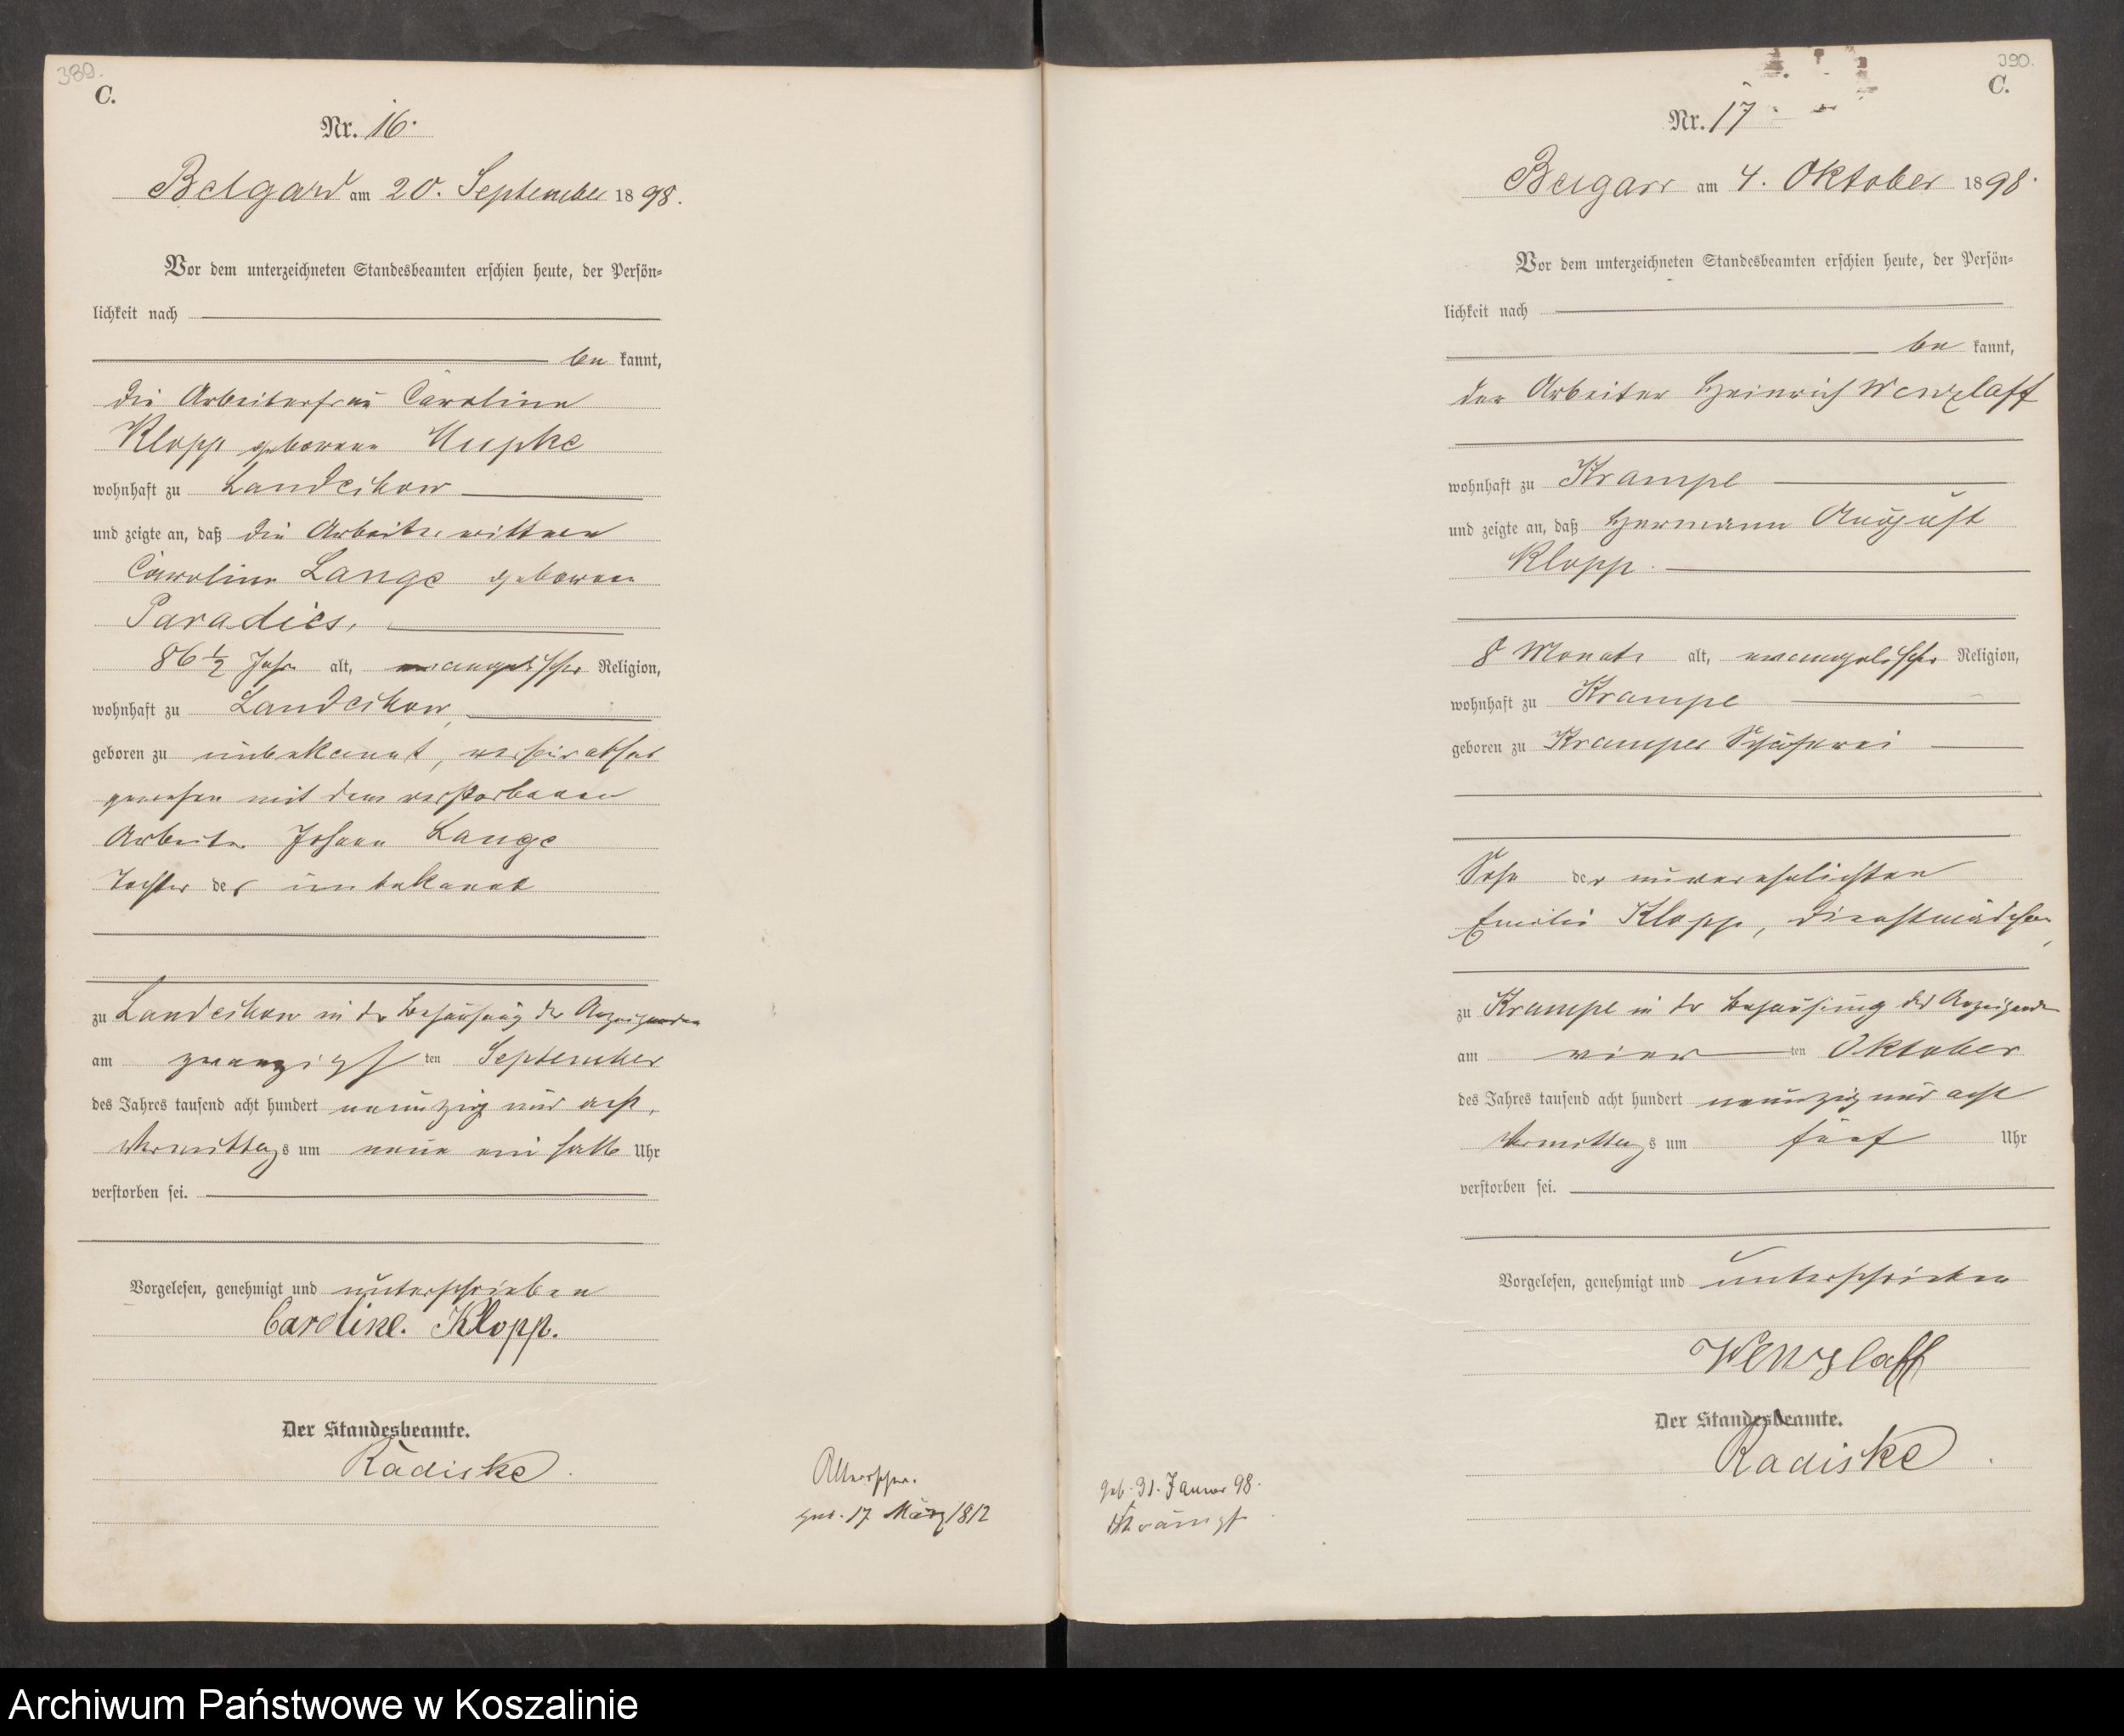 389.
C.
Nr. 16.
Belgard am 20. September 1898.
Vor dem unterzeichneten Standesbeamten erschien heute, der Persön-
lichkeit nach
be kannt,
die Arbeiterfrau Caroline
Klopp geborene Hupke
wohnhaft zu Landechow
und zeigte an, daß die Arbeiterwittwe
Caroline Lange geborene
Paradies,
86 1/2 Jahr alt, evangelischer Religion,
wohnhaft zu Landechow,
geboren zu unbekannt, verheirathet
gewesen mit dem verstorbenen
Arbeiter Johann Lange
Tochter der unbekannt
zu Landechow in der Behausung der Anzeigenden
am zwanzigsten September
des Jahres tausend acht hundert neunzig und acht,
Vormittags um neun ein halb Uhr
verstorben sei.
Vorgelesen, genehmigt und unterschrieben
Caroline. Klopp.
Der Standesbeamte.
Radiske
geb. 17 März 1812
390.
C.
Nr. 17
Belgard am 4. Oktober 1898.
Vor dem unterzeichneten Standesbeamten erschien heute, der Persön-
lichkeit nach
be kannt,
der Arbeiter Heinrich Wenzlaff
wohnhaft zu Krampe
und zeigte an, daß Hermann August
Klopp.
8 Monate alt, evangelischer Religion,
wohnhaft zu Krampe
geboren zu Kramper Schäferei
Sohn der unverehelichten
Emilie Klopp, Dienstmädchen,
zu Krampe in der Behausung des Anzeigenden
am vierten Oktober
des Jahres tausend acht hundert neunzig und acht
Vormittags um fünf Uhr
verstorben sei.
Vorgelesen, genehmigt und unterschrieben
Wenzlaff
Der Standesbeamte.
Radiske
geb. 31. Januar 98.
Krämpfe
Archiwum Państwowe w Koszalinie